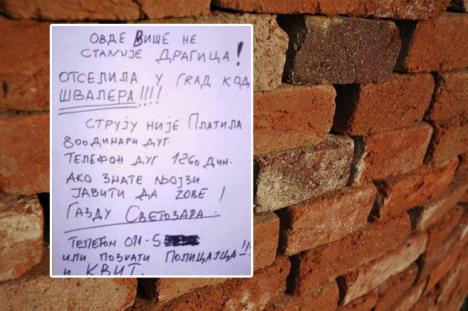 ОВДЕ ВИШЕ НЕ
СТАНУЈЕ ДРАГИЦА!
ОТСЕЛИЛА У ГРАД КОД
ШВАЛЕРА!!!!
СТРУЈУ НИЈЕ ПЛАТИЛА
800 ДИНАРИ ДУГ.
ТЕЛЕФОН ДУГ 1260 ДИН.
АКО ЗНАТЕ ЊОЈЗИ
ЈАВИТИ ДА ЗОВЕ!
ГАЗДУ СВЕТОЗАРА.
ТЕЛЕФОН 011-5
ИЛИ ПОЗВАТИ ПОЛИЦАЈЦА!!
И КВИТ.